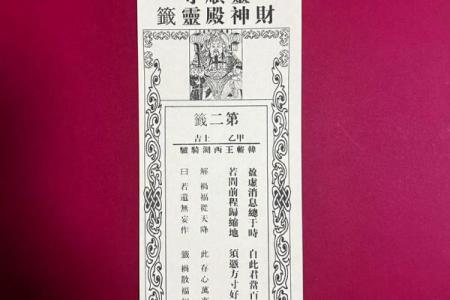 財神殿靈籤
第二籤
甲乙 上吉
韓蘄王西湖騎驢
盈虛消息總于時 自此君當百
若問前程歸縮地 須憑方寸好
解 禍福從天降 此存心萬
曰 若還無妄作 籤 禍散福